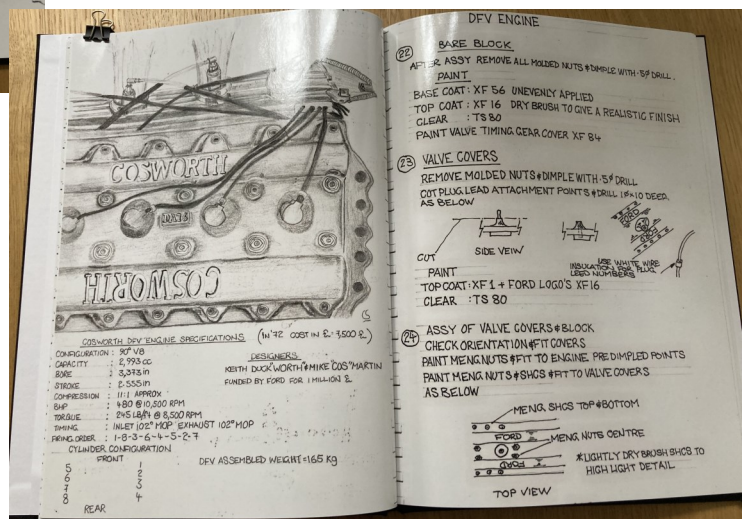 COSWORTH
COSWORTH
COSWORTH DFV ENGINE SPECIFICATIONS (IN '72 COST IN £ = 7,500 £)
CONFIGURATION : 90° V8
CAPACITY : 2,993 CC
BORE : 3,373 in
STROKE : 2.555 in
COMPRESSION : 11:1 APPROX
BHP : 480 @ 10,500 RPM
TORQUE : 245 LB/ft @ 8,500 RPM
TIMING : INLET 102° MOP EXHAUST 102° MOP
FIRING ORDER : 1-8-3-6-4-5-2-7
CYLINDER CONFIGURATION
FRONT
5 1
6 2
7 3
8 4
REAR
DESIGNERS
KEITH DUCK"WORTH & MIKE "COS" MARTIN
FUNDED BY FORD FOR 1 MILLION £
DFV ASSEMBLED WEIGHT = 165 KG
DFV ENGINE
22 BARE BLOCK
AFTER ASSY REMOVE ALL MOLDED NUTS & DIMPLE WITH ·5ø DRILL.
PAINT
BASE COAT: XF 56 UNEVENLY APPLIED
TOP COAT: XF 16 DRY BRUSH TO GIVE A REALISTIC FINISH
CLEAR : TS 80
PAINT VALVE TIMING GEAR COVER XF 84
23 VALVE COVERS
REMOVE MOLDED NUTS & DIMPLE WITH ·5ø DRILL
CUT PLUG LEAD ATTACHMENT POINTS & DRILL 1ø x 10 DEEP.
AS BELOW
CUT
SIDE VEIW
FORD
FORD
USE WHITE WIRE
INSULATION FOR PLUG
LEED NUMBERS
PAINT
TOP COAT: XF 1 + FORD LOGO'S XF 16
CLEAR : TS 80
24 ASSY OF VALVE COVERS & BLOCK
CHECK ORIENTATION & FIT COVERS
PAINT MENG NUTS & FIT TO ENGINE PRE DIMPLED POINTS
PAINT MENG NUTS & SHCS & FIT TO VALVE COVERS
AS BELOW
MENG SHCS TOP & BOTTOM
FORD
MENG NUTS CENTRE
FORD
*LIGHTLY DRY BRUSH SHCS TO
HIGH LIGHT DETAIL
TOP VIEW